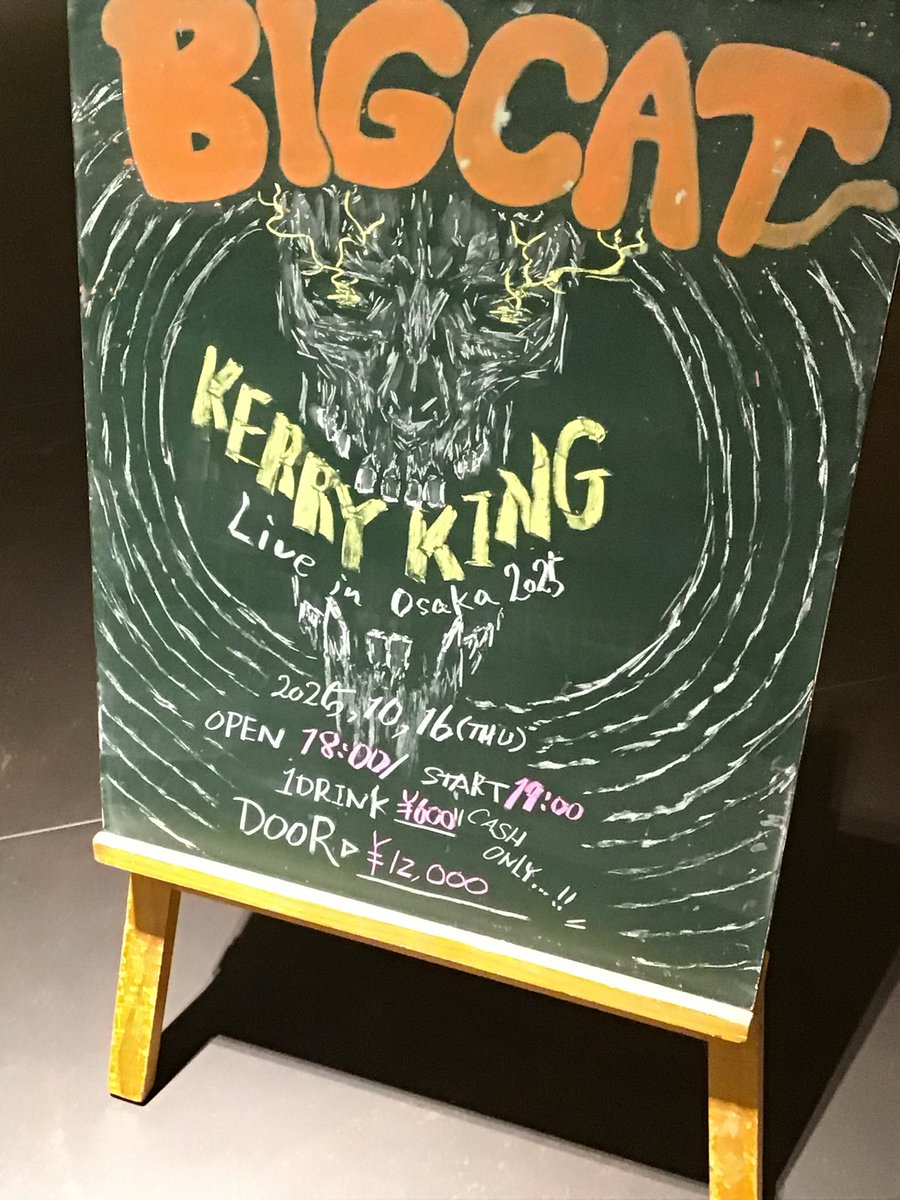 BIGCAT
KERRY KING
Live in Osaka 2025
2025,10,16(THU)
OPEN 18:00/ START 19:00
1DRINK ¥600 CASH ONLY...!!
DOOR▷ ¥12,000